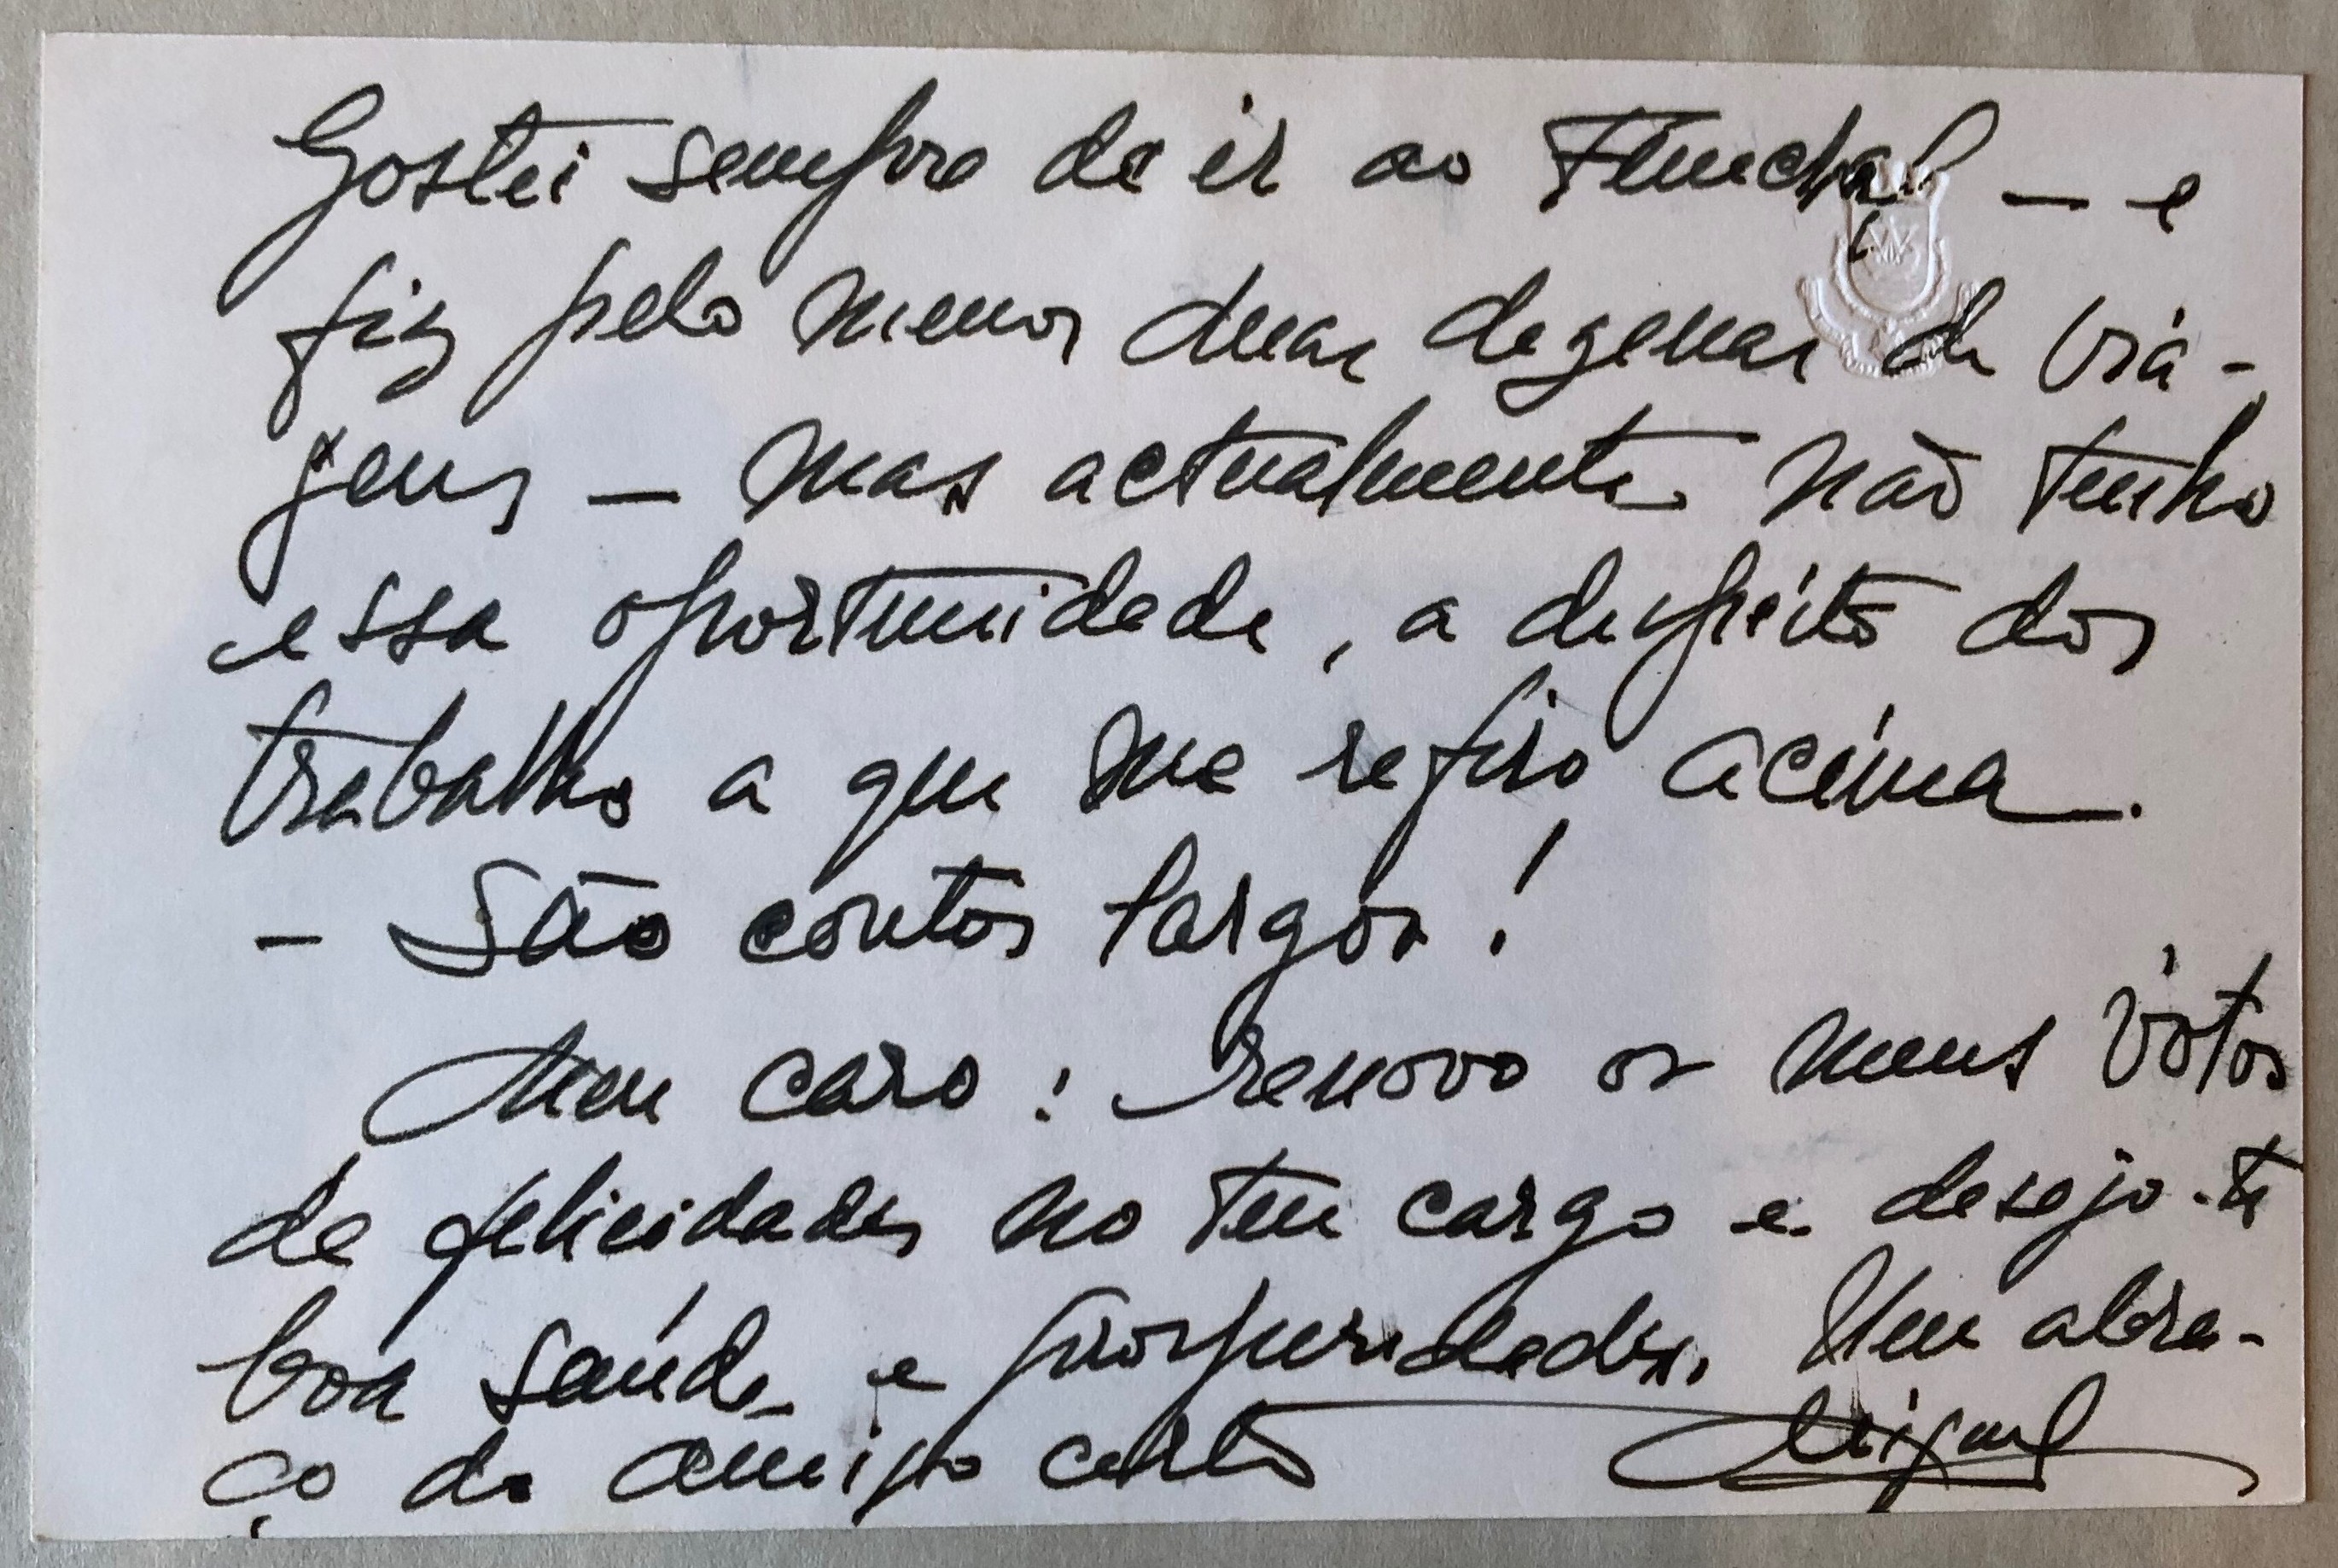 Gostei sempre de ir ao Funchal — e
fiz pelo menos duas dezenas de via-
gens — mas actualmente não tenho
essa oportunidade, a despeito dos
trabalhos a que me refiro acima.
- São contos largos!
Meu caro: renovo os meus votos
de felicidades no teu cargo e desejo-te
boa saúde e prosperidades. Um abra-
ço do amigo certo Miguel